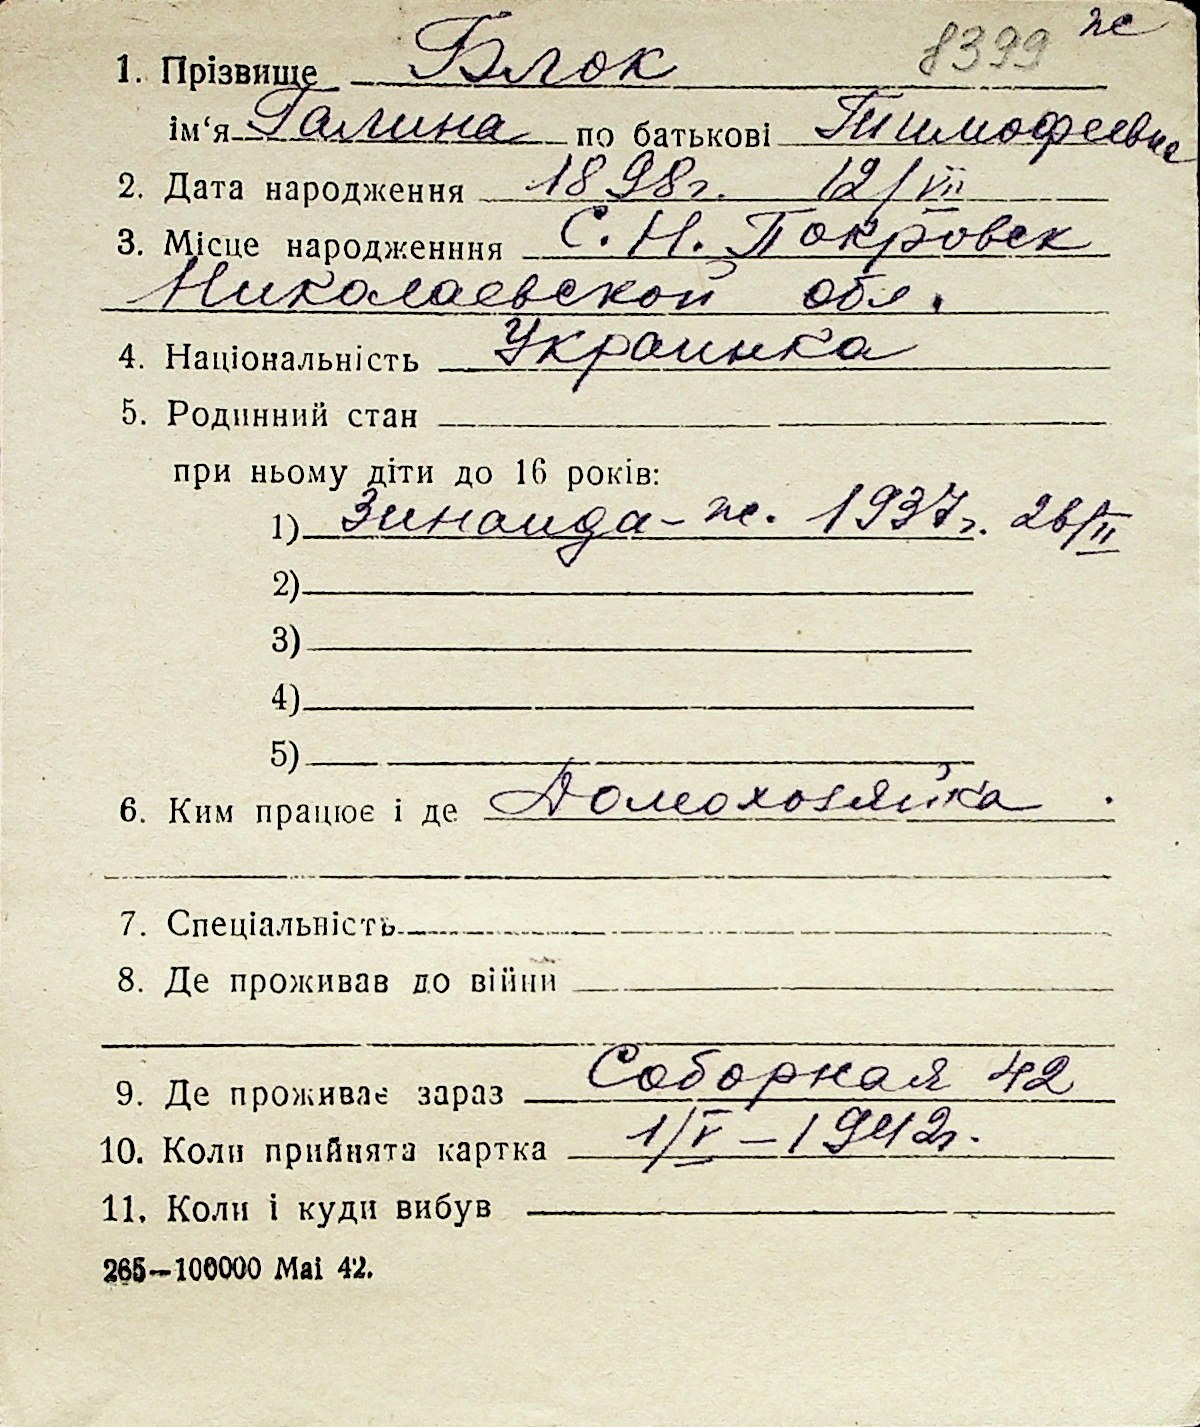 8399 ж
1. Прізвище Блок
ім‘я Галина по батькові Тимофеевна
2. Дата народження 1898г. 12/VII
3. Місце народженння С. Н. Покровск
Николаевской обл.
4. Національність Украинка
5. Родинний стан
при ньому діти до 16 років:
1) Зинаида - ж. 1937г. 26/II
2)
3)
4)
5)
6. Ким працює і де Домохозяйка.
7. Спеціальність
8. Де проживав до війни
9. Де проживає зараз Соборная 42
10. Коли прийнята картка 1/V – 1942г.
11. Коли і куди вибув
265—100000 Mai 42.